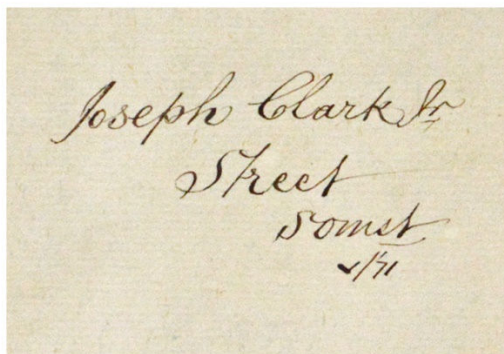 Joseph Clark Jr
Street
Somst